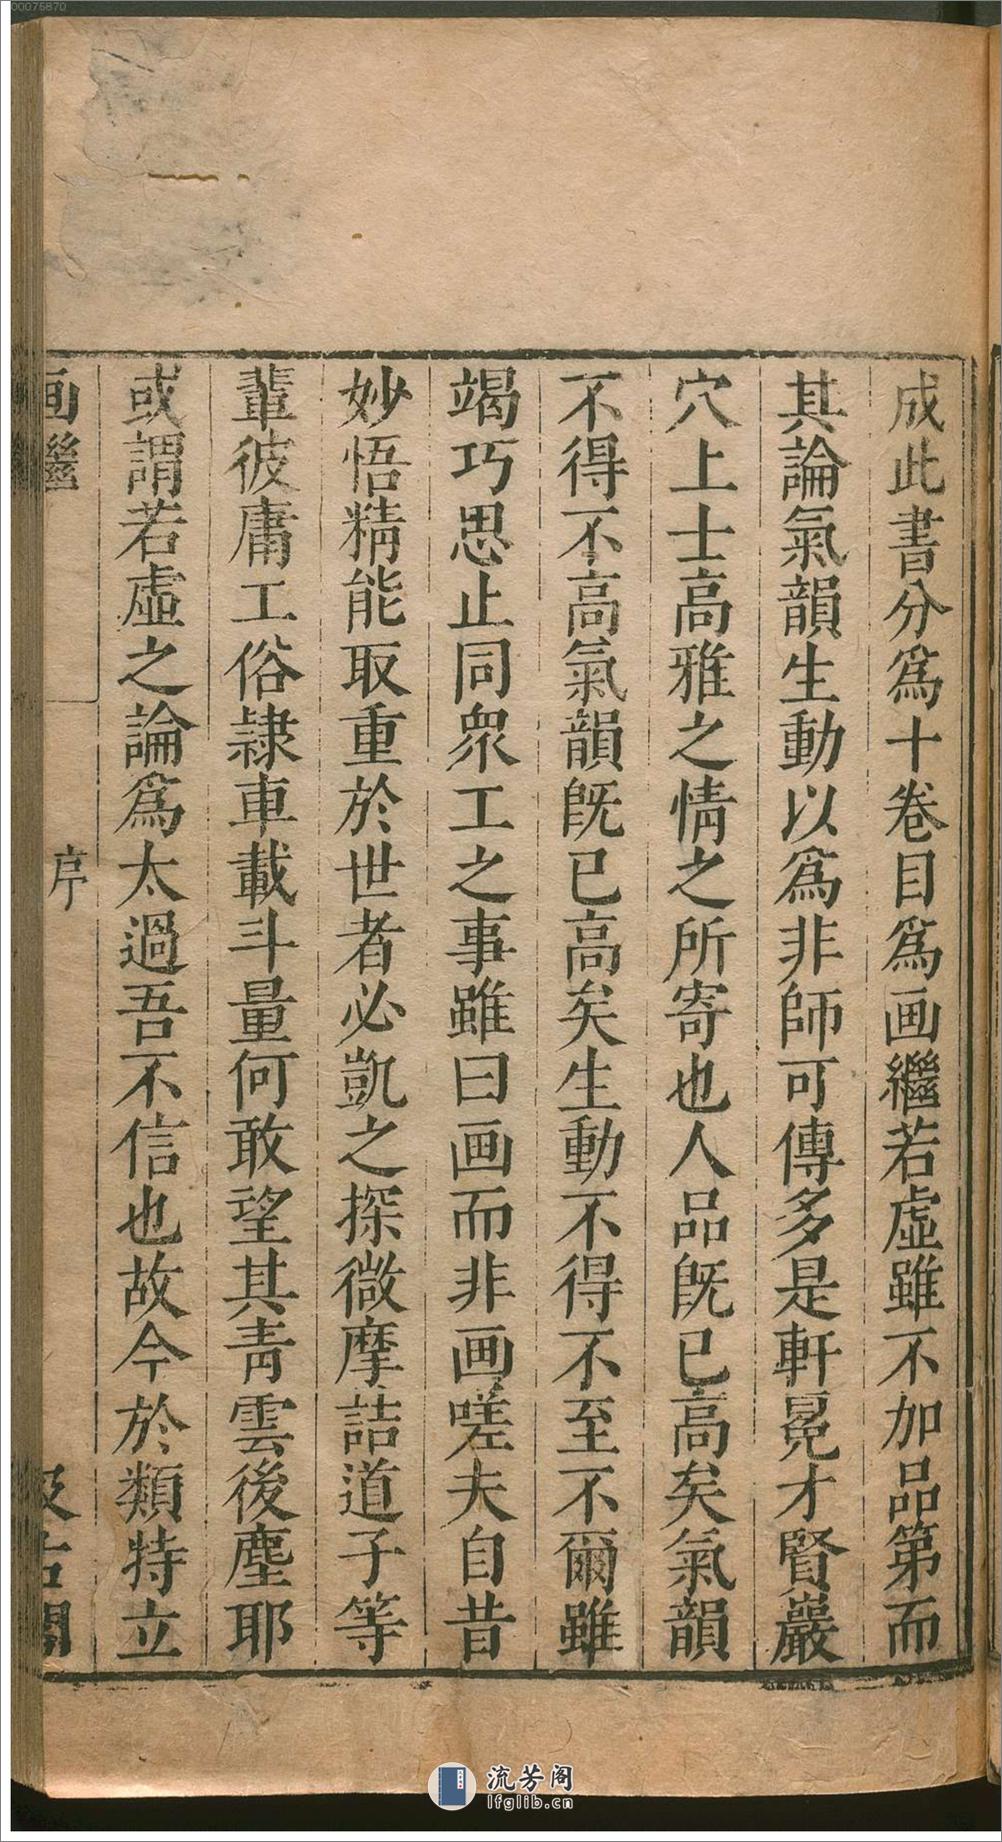 00075870
成此書分爲十卷目爲画繼若虛雖不加品第而
其論氣韻生動以爲非師可傳多是軒冕才賢巖
穴上士高雅之情之所寄也人品旣已高矣氣韻
不得不高氣韻旣已高矣生動不得不至不爾雖
竭巧思止同衆工之事雖曰画而非画嗟夫自昔
妙悟精能取重於世者必凱之探微摩詰道子等
輩彼庸工俗隷車載斗量何敢望其靑雲後塵耶
或謂若虛之論爲太過吾不信也故今於類特立
画繼
序
汲古閣
流芳阁
lfglib.cn